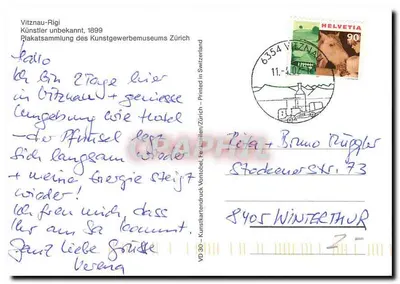 Vitznau-Rigi
Künstler unbekannt, 1899
Plakatsammlung des Kunstgewerbemuseums Zürich
Hallo
Ich bin 2 Tage hier
in Vitznau + geniesse
Umgebung wie Hotel
– der Pfnüsel legt
sich langsam wieder
+ meine Energie steigt
wieder!
Ich freu mich, dass
Ihr am Sa kommt.
Ganz liebe Grüsse
Verena
VD 30 – Kunstkartendruck Vontobel, Zürich – Printed in Switzerland
6354 VITZNAU
11.
HELVETIA
90
Rita + Bruno Rüggler
Steckener Str. 73
8405 WINTERTHUR
2.-